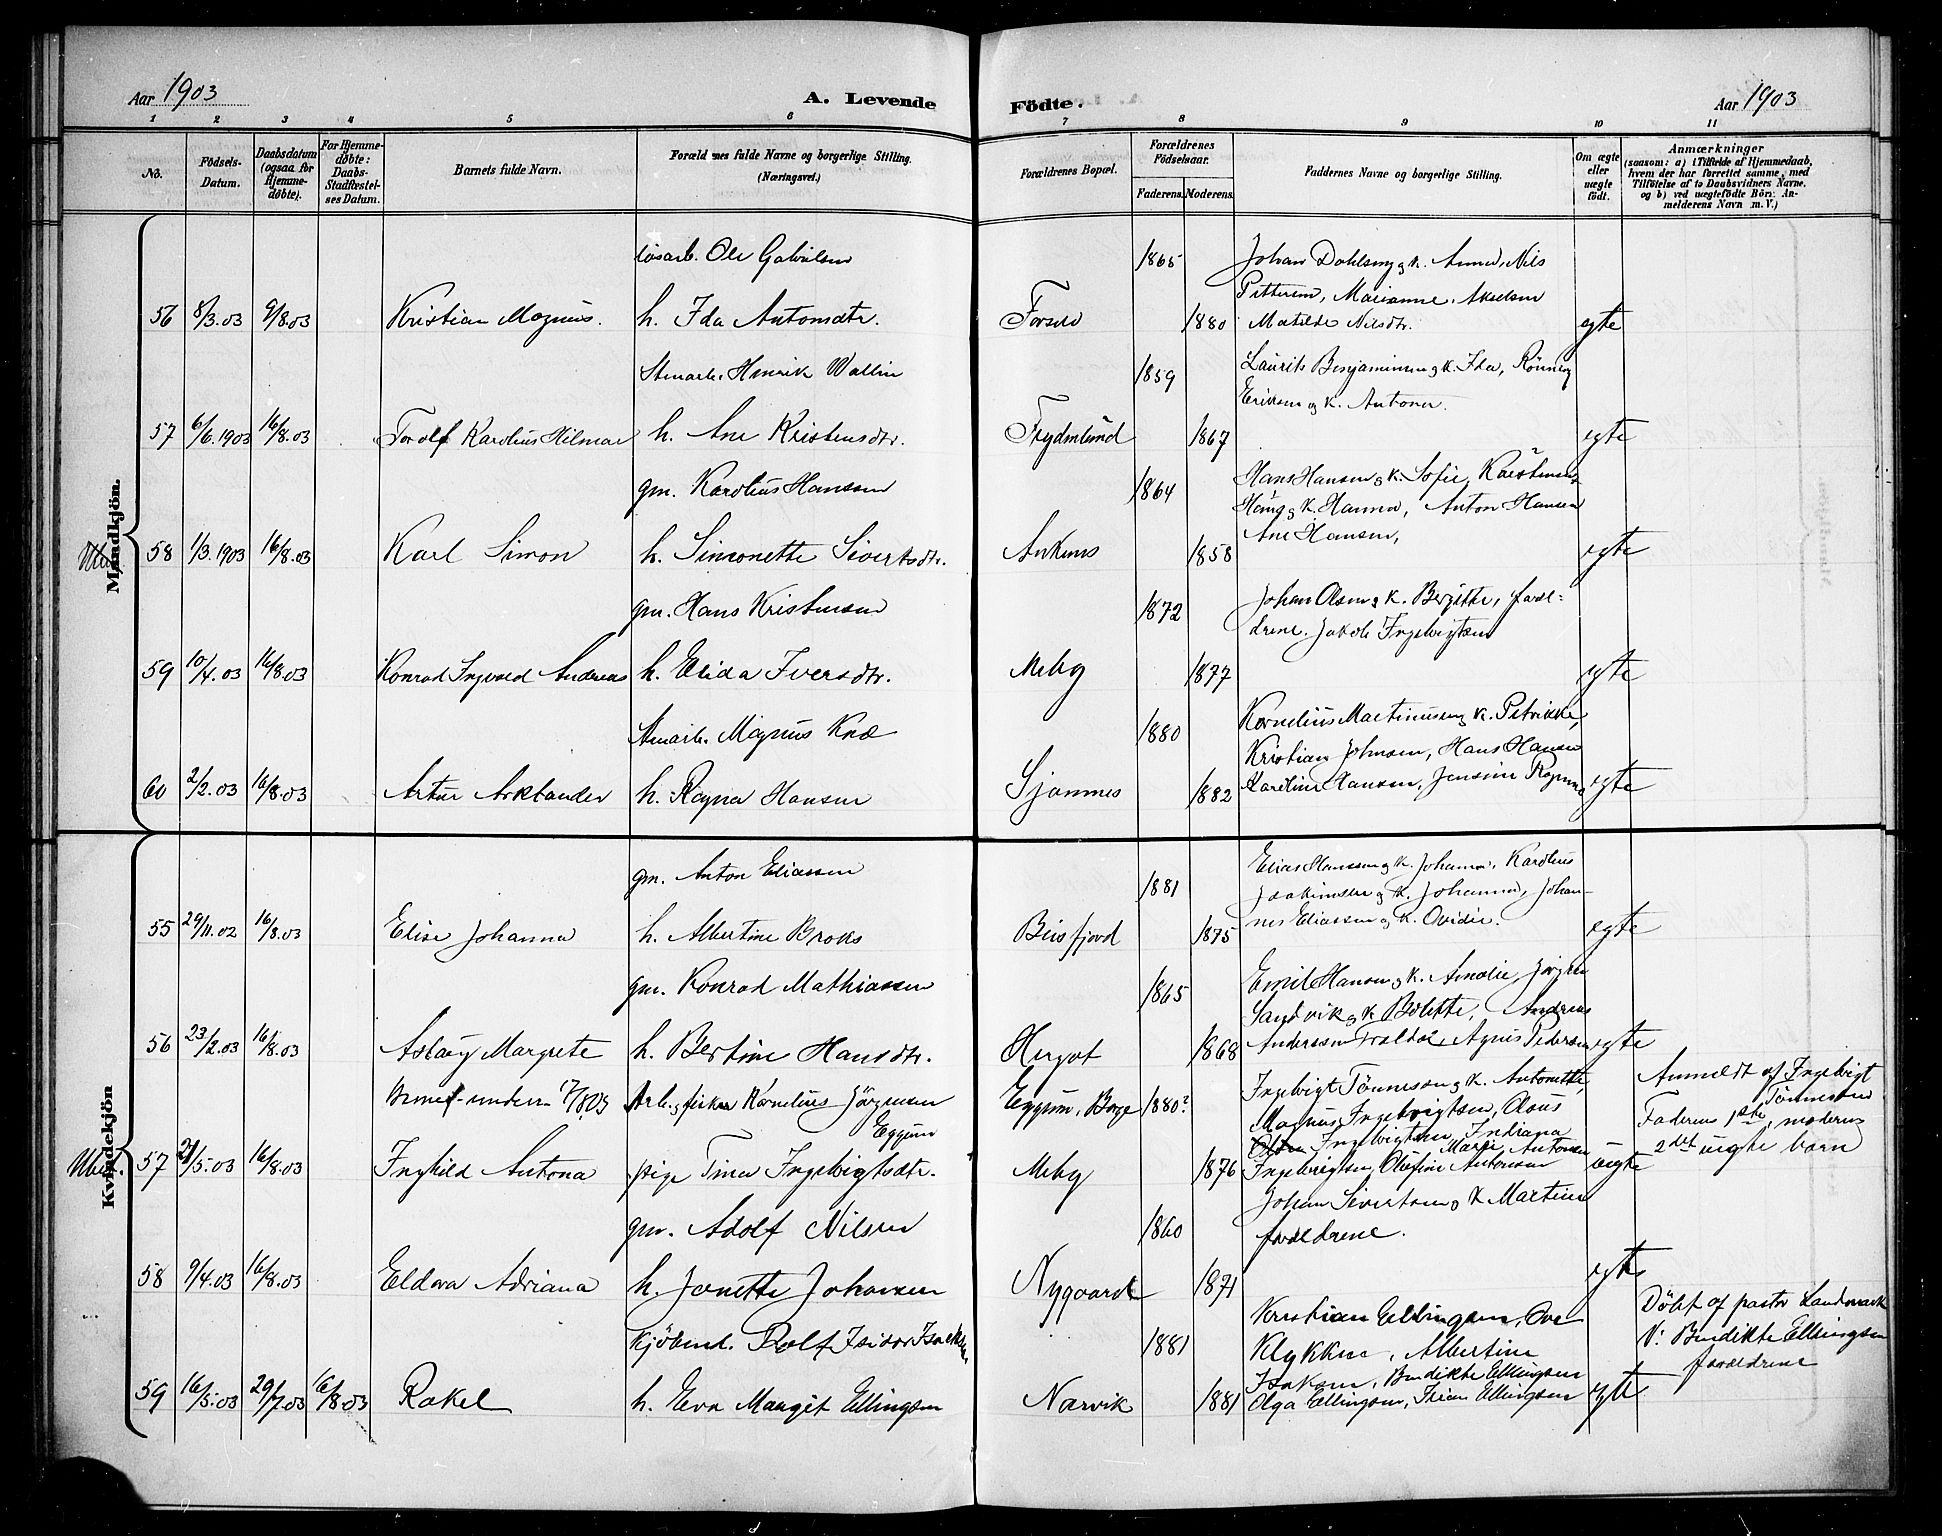 Aar 1903
A. Levende
Födte.
Aar 1903
1 2 3 4 5 6 7 8 9 10 11
No.
Födsels-Datum.
Daabsdatum (ogsaa for Hjemmedøbte).
For Hjemmedøbte: Daabs-Stadfæstelses Datum.
Barnets fulde Navn.
Forældrenes fulde Navne og borgerlige Stilling.
(Næringsvei.)
Forældrenes Bopæl.
Forældrenes Födselsaar.
Faderens. Moderens.
Faddernes Navne og borgerlige Stilling.
Om ægte eller uægte født.
Anmærkninger
(saasom: a) i Tilfælde af Hjemmedaab,
hvem der har forrettet samme, med
Tilføielse af to Daabsvidners Navne.
og b) ved uægtefödte Börn An-
melderens Navn m. V.)
Mandkjön.
løsarb. Ole
1865
Johan Nils
56 8/3.03 9/8.03 Kristian Magnus. h. Ida Antonsdtr. 1880 egte
Marianne Akselsen
Matilde Nilsdtr.
Henrik Wallin
1859
Laurits Benjaminsen og k. Ida,
Eriksen og k. Antona.
57 6/6.1903 16/8.03 Torolf Karolius Hilmar h. Ane Kristensdtr. Frydenlund 1867 egte
gm. Karolius Hanssen
1864
Hans Hansen og k. Sofie,
k. Hanna, Anton Hansen
Ane Hansen,
58 1/3.1903 16/8.03 Karl Simon h. Simonette Sivertsdtr. Ankenes 1858 egte
gm. Hans Kristensen
1872
Johan Olsen og k. Bergitte, foræl-
drene. Jakob Ingebrigtsen
59 10/4.03 16/8.03 Konrad Ingvald Andreas h. Elida Iversdtr. Meby 1877 egte
Magnus
1880
Kornelius Martinussen og k. Petrikke,
Kristian Johnsen, Hans Hansen
60 2/2.03 16/8.03 Artur Arklander h. Ragna Hansen Sjomnes 1882 Karoline Hansen, egte
Kvindekjön
gm. Anton Eliassen
1881
Elias Hanssen og k. Johanna, Karolius
Joakimsen og k. Johanna, Johan-
nes Eliassen og k. Ovidie.
55 29/11.02 16/8.03 Elise Johanna h. Albertine Broks Beisfjord 1875 egte
gm. Konrad Mathiassen
1865
Emil Hansen og k. Amalie Jørgen
Sandvik og k. Bolette, Andreas
56 23/2.03 16/8.03 Aslaug Margrete h. Bertine Hansdtr. Hergot 1868 Anderssen Agnes Pedersen egte
17/8.03 Arb. og fisker Kornelius Jörgensen
Eggum
Eggum, Borge 1880?
Ingebrigt Tønnesen og k. Antonette,
Magnus Ingebrigtsen, Olaus
Ingebrigtsen, Indiana
Anmeldt af Ingebrigt
Tønnesen
Faderens 1ste, moderens
2det uegte barn
57 21/5.03 16/8.03 Inghild Antona pige Tina Ingebrigtsdtr. Meby 1876 Ingebrigtsen, Olefine Antonsen uegte
gm. Adolf Nilsen
1860
Johan Sivertsen og k. Martine
forældrene.
58 9/4.03 16/8.03 Eldora Adriana h. Janette Johansen Nygaard 1871 egte
Kjöbmd. Rolf Isidor Isaksen
1881
Kristian Ellingsen, Ove
Klykken, Albertine
Isaksen, Bendikte Ellingsen
Olga Ellingsen, Ellingsen
Döbt af pastor Landmark
V: Bendikte Ellingsen
forældrene
59 16/5.03 29/7.03 16/8.03 Rakel h. Eva Margit Ellingsen Narvik 1881 egte